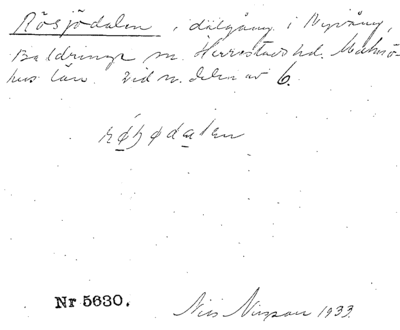 Rösjödalen, dälgång i Nyvång,
Baldringe sn. Herrestads hd. Malmö-
hus län. vid n. delen av 6.
Nr 5630.
Nils Nilsson 1933.